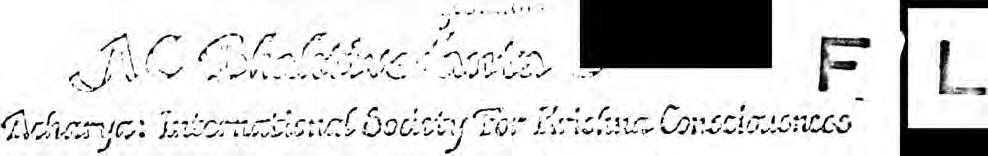 AC Bhaktivedanta
F L
Acharya: International Society For Krishna Consciousness